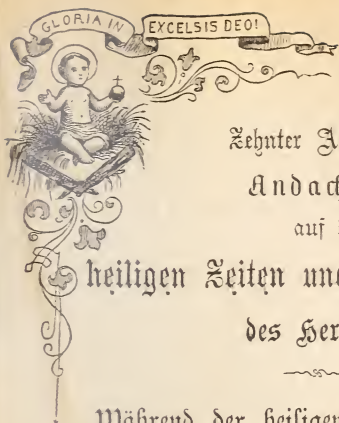 GLORIA IN EXCELSIS DEO!
Zehnter A
Andach
auf
heiligen Zeiten und
des Her
Während der heiligen